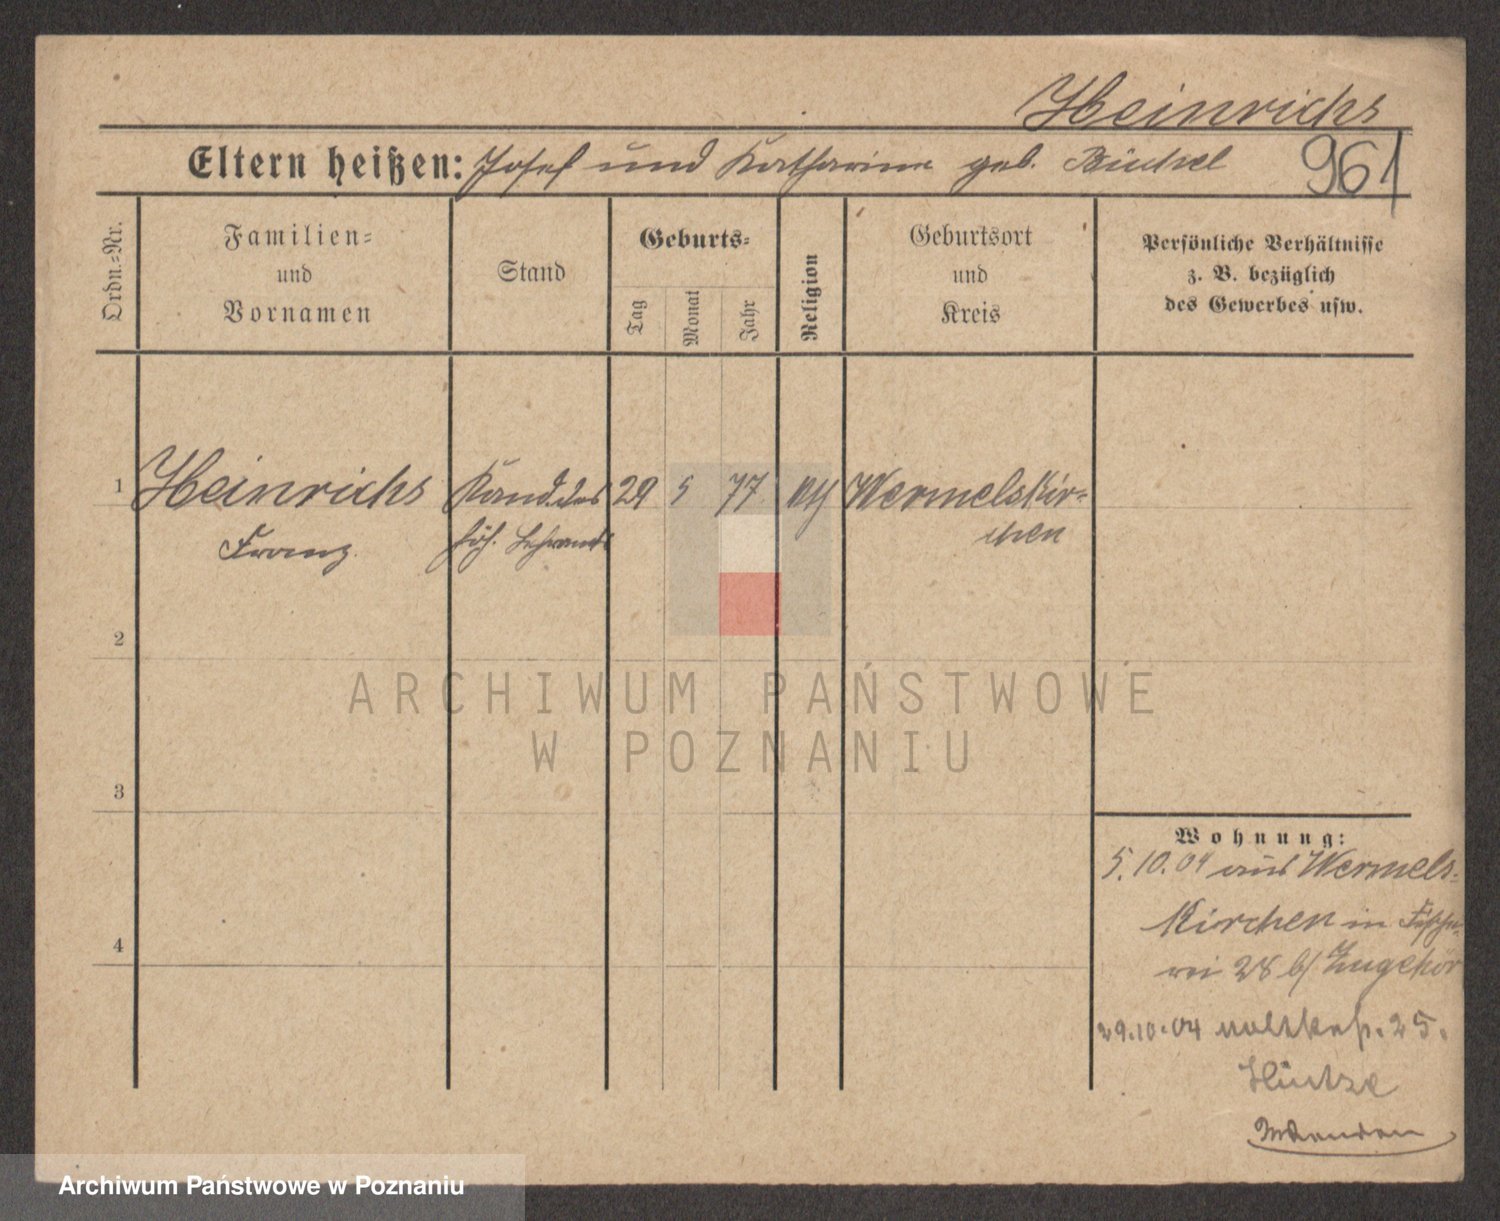 Heinrichs
Eltern heißen: Josef und Katharina geb. Bückel
961
Ordn.=Nr.
Familien=
und
Vornamen
Stand
Geburts=
Tag
Monat
Jahr
Religion
Geburtsort
und
Kreis
Persönliche Verhältnisse
z. B. bezüglich
des Gewerbes usw.
1 Heinrichs Kand. des 29 5 77 Wermelskir=
Franz. höh. Lehramts chen
2
ARCHIWUM PAŃSTWOWE
W POZNANIU
3
Wohnung:
5.10.04 aus Wermels=
kirchen in
28 b/
4
29.10.04 25.
Archiwum Państwowe w Poznaniu